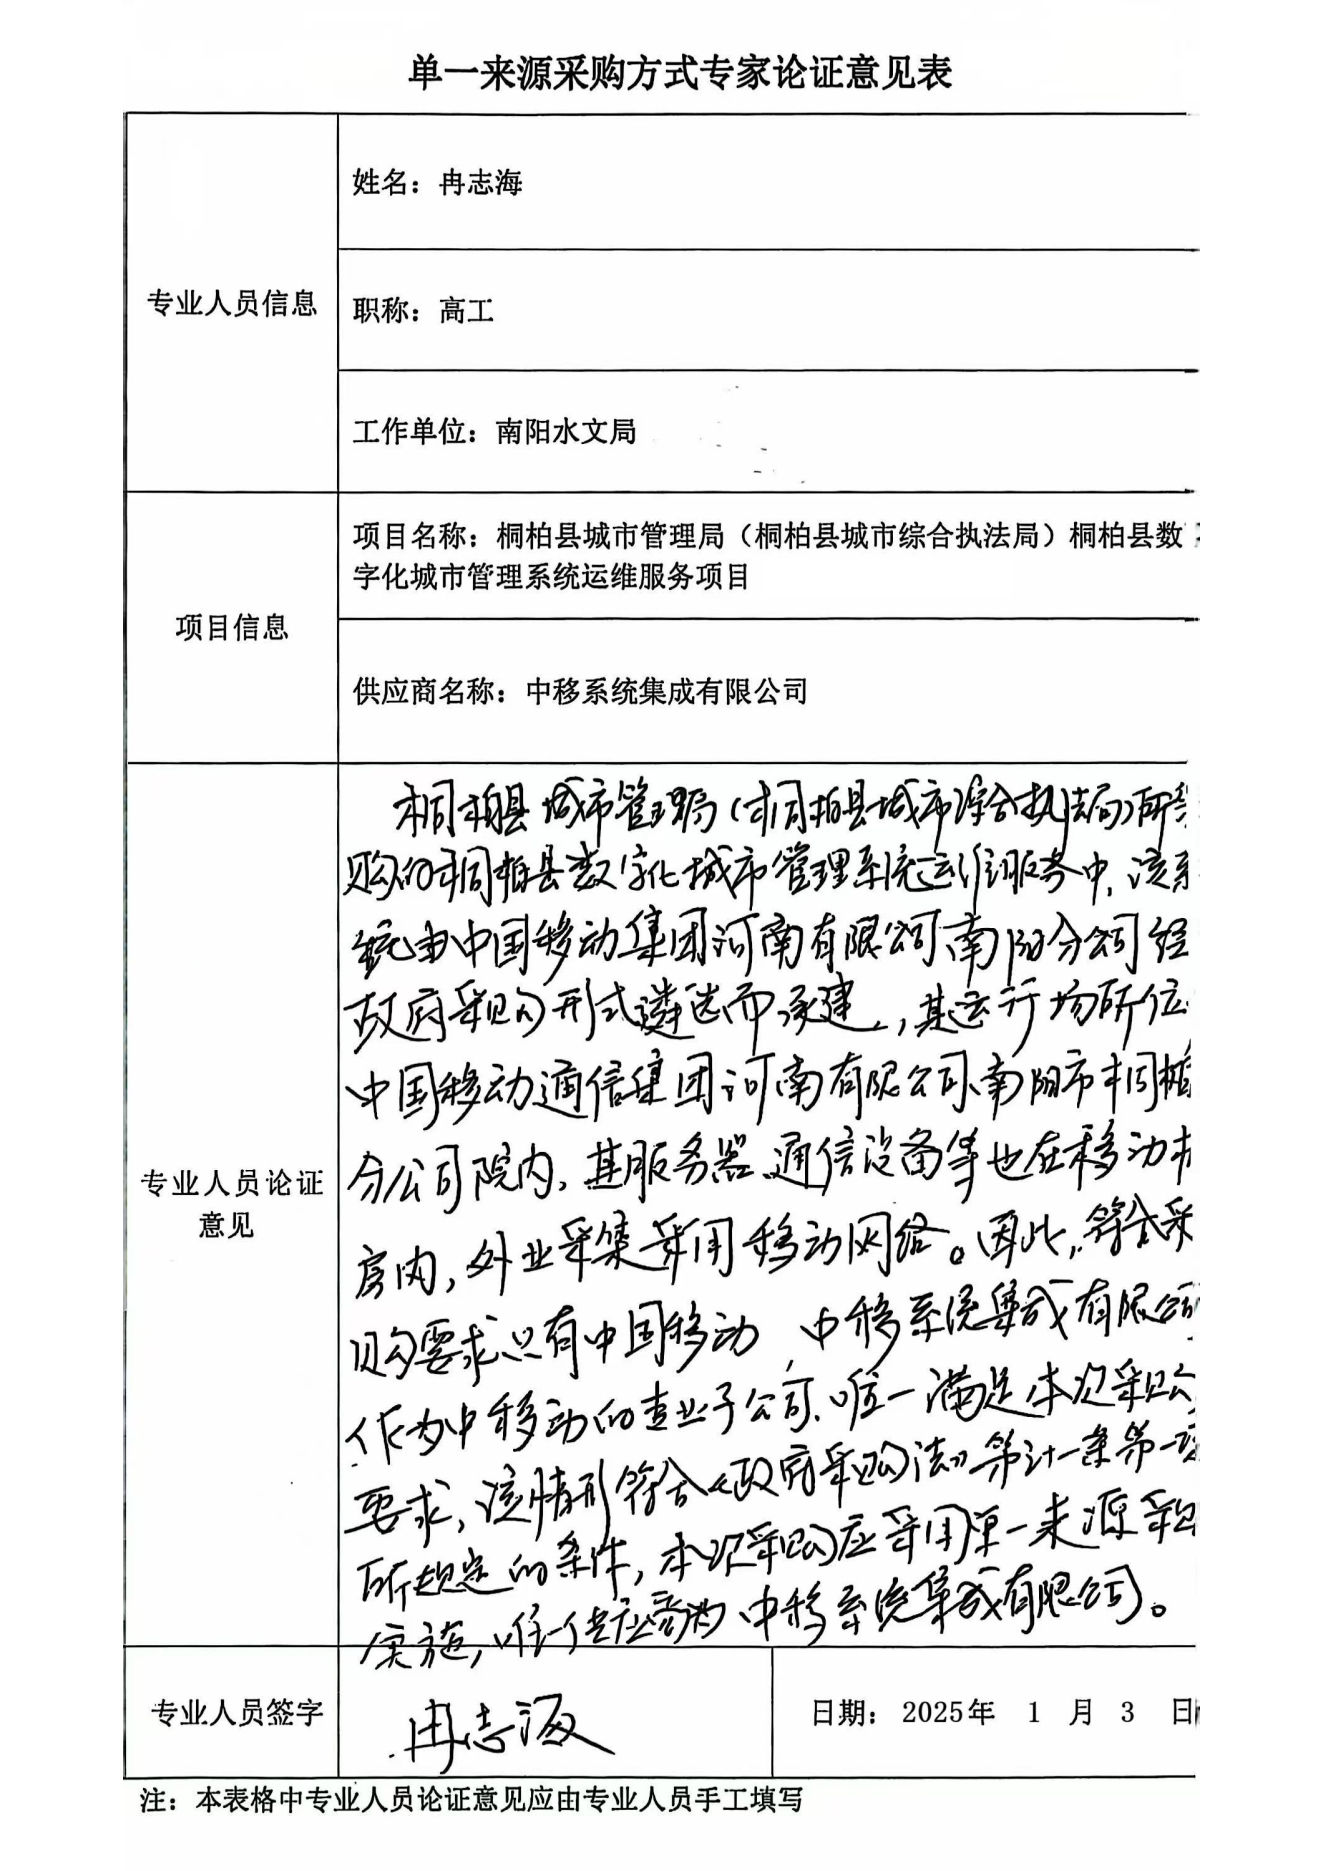 单一来源采购方式专家论证意见表
专业人员信息
姓名：冉志海
职称：高工
工作单位：南阳水文局
项目信息
项目名称：桐柏县城市管理局（桐柏县城市综合执法局）桐柏县数
字化城市管理系统运维服务项目
供应商名称：中移系统集成有限公司
专业人员论证
意见
桐柏县城市管理局（桐柏县城市综合执法局）所采
购的桐柏县数字化城市管理系统运维服务中，该系
统由中国移动集团河南有限公司南阳分公司经
政府采购形式遴选而承建，其运行场所位
中国移动通信集团河南有限公司南阳市桐柏
分公司院内，其服务器、通信设备等也在移动
房内，外业采集采用移动网络。因此，符合采
购要求只有中国移动，中移系统集成有限公司
作为中移动的专业子公司，唯一满足本次采购
要求，该情形符合《政府采购法》第卅一条第一款
所规定的条件，本次采购应采用单一来源采购
实施，唯一供应商为中移系统集成有限公司。
专业人员签字
冉志海
日期： 2025年 1 月 3 日
注：本表格中专业人员论证意见应由专业人员手工填写